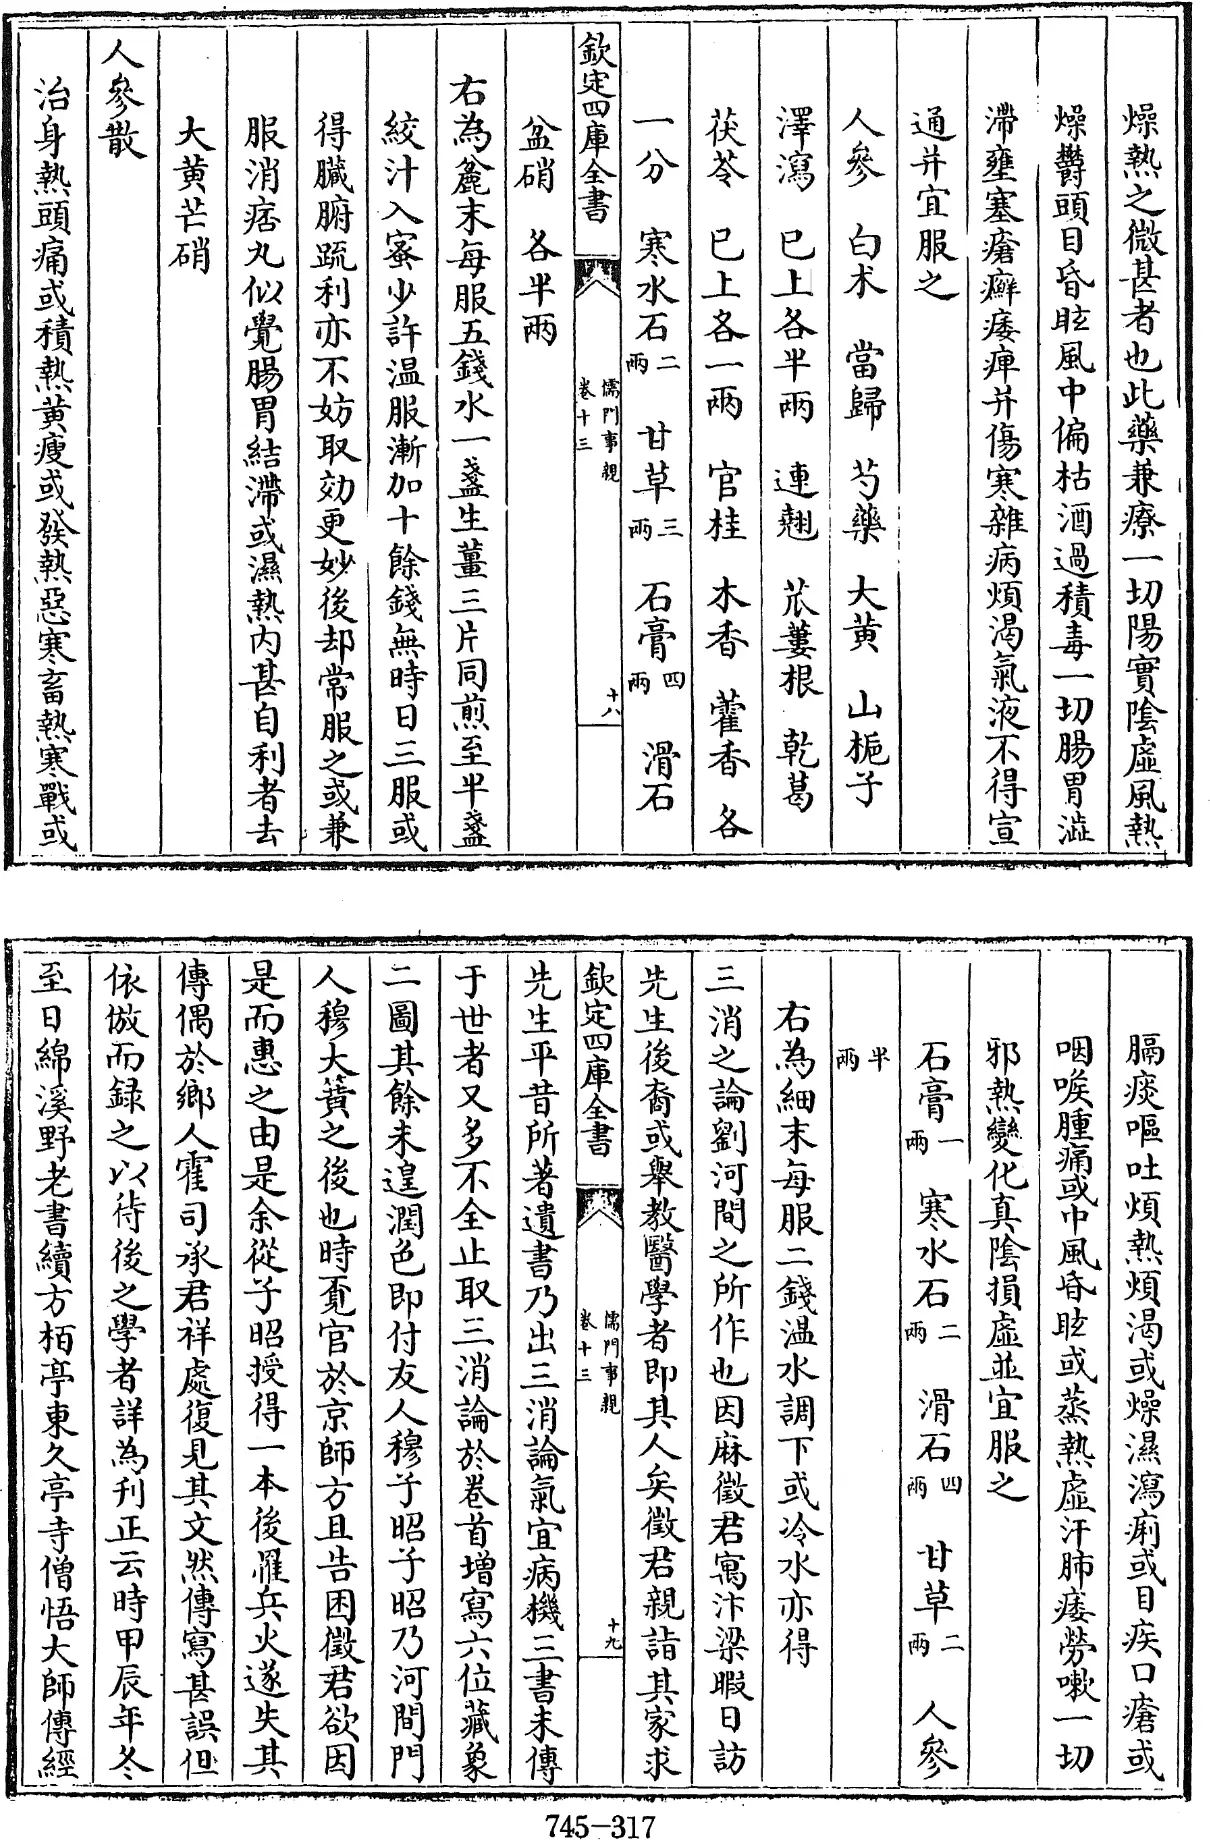 燥熱之微甚者也此藥兼療一切陽實陰虛風熱
燥鬱頭目昏眩風中偏枯酒過積毒一切腸胃澁
滯壅塞瘡癬痿痺并傷寒雜病煩渴氣液不得宣
通并宜服之
人參 白术 當歸 芍藥 大黄 山梔子
澤瀉 已上各半兩 連翹 苽蔞根 乾葛
茯苓 已上各一兩 官桂 木香 藿香 各
一分 寒水石二兩 甘草三兩 石膏四兩 滑石
欽定四庫全書 儒門事親 卷十三 十八
盆硝 各半兩
右為麄末每服五錢水一盞生薑三片同煎至半盞
絞汁入蜜少許温服漸加十餘錢無時日三服或
得臓腑疏利亦不妨取効更妙後却常服之或兼
服消痞丸似覺腸胃結滯或濕熱内甚自利者去
大黄芒硝
人參散
治身熱頭痛或積熱黄瘦或發熱惡寒畜熱寒戰或
膈痰嘔吐煩熱煩渴或燥濕瀉痢或目疾口瘡或
咽喉腫痛或中風昏眩或蒸熱虛汗肺痿勞嗽一切
邪熱變化真陰損虛並宜服之
石膏一兩 寒水石二兩 滑石四兩 甘草二兩 人參
半兩
右為細末每服二錢温水調下或冷水亦得
三消之論劉河間之所作也因麻徵君寓汴梁暇日訪
先生後裔或舉教醫學者即其人矣徵君親詣其家求
欽定四庫全書 儒門事親 卷十三 十九
先生平昔所著遺書乃出三消論氣宜病機三書未傳
于世者又多不全止取三消論於卷首增寫六位藏象
二圖其餘未遑潤色即付友人穆子昭子昭乃河間門
人穆大黄之後也時覔官於京師方且告困徵君欲因
是而惠之由是余從子昭授得一本後罹兵火遂失其
傳偶於鄉人霍司承君祥處復見其文然傳寫甚誤但
依倣而録之以待後之學者詳為刋正云時甲辰年冬
至日綿溪野老書續方栢亭東久亭寺僧悟大師傳經
745-317